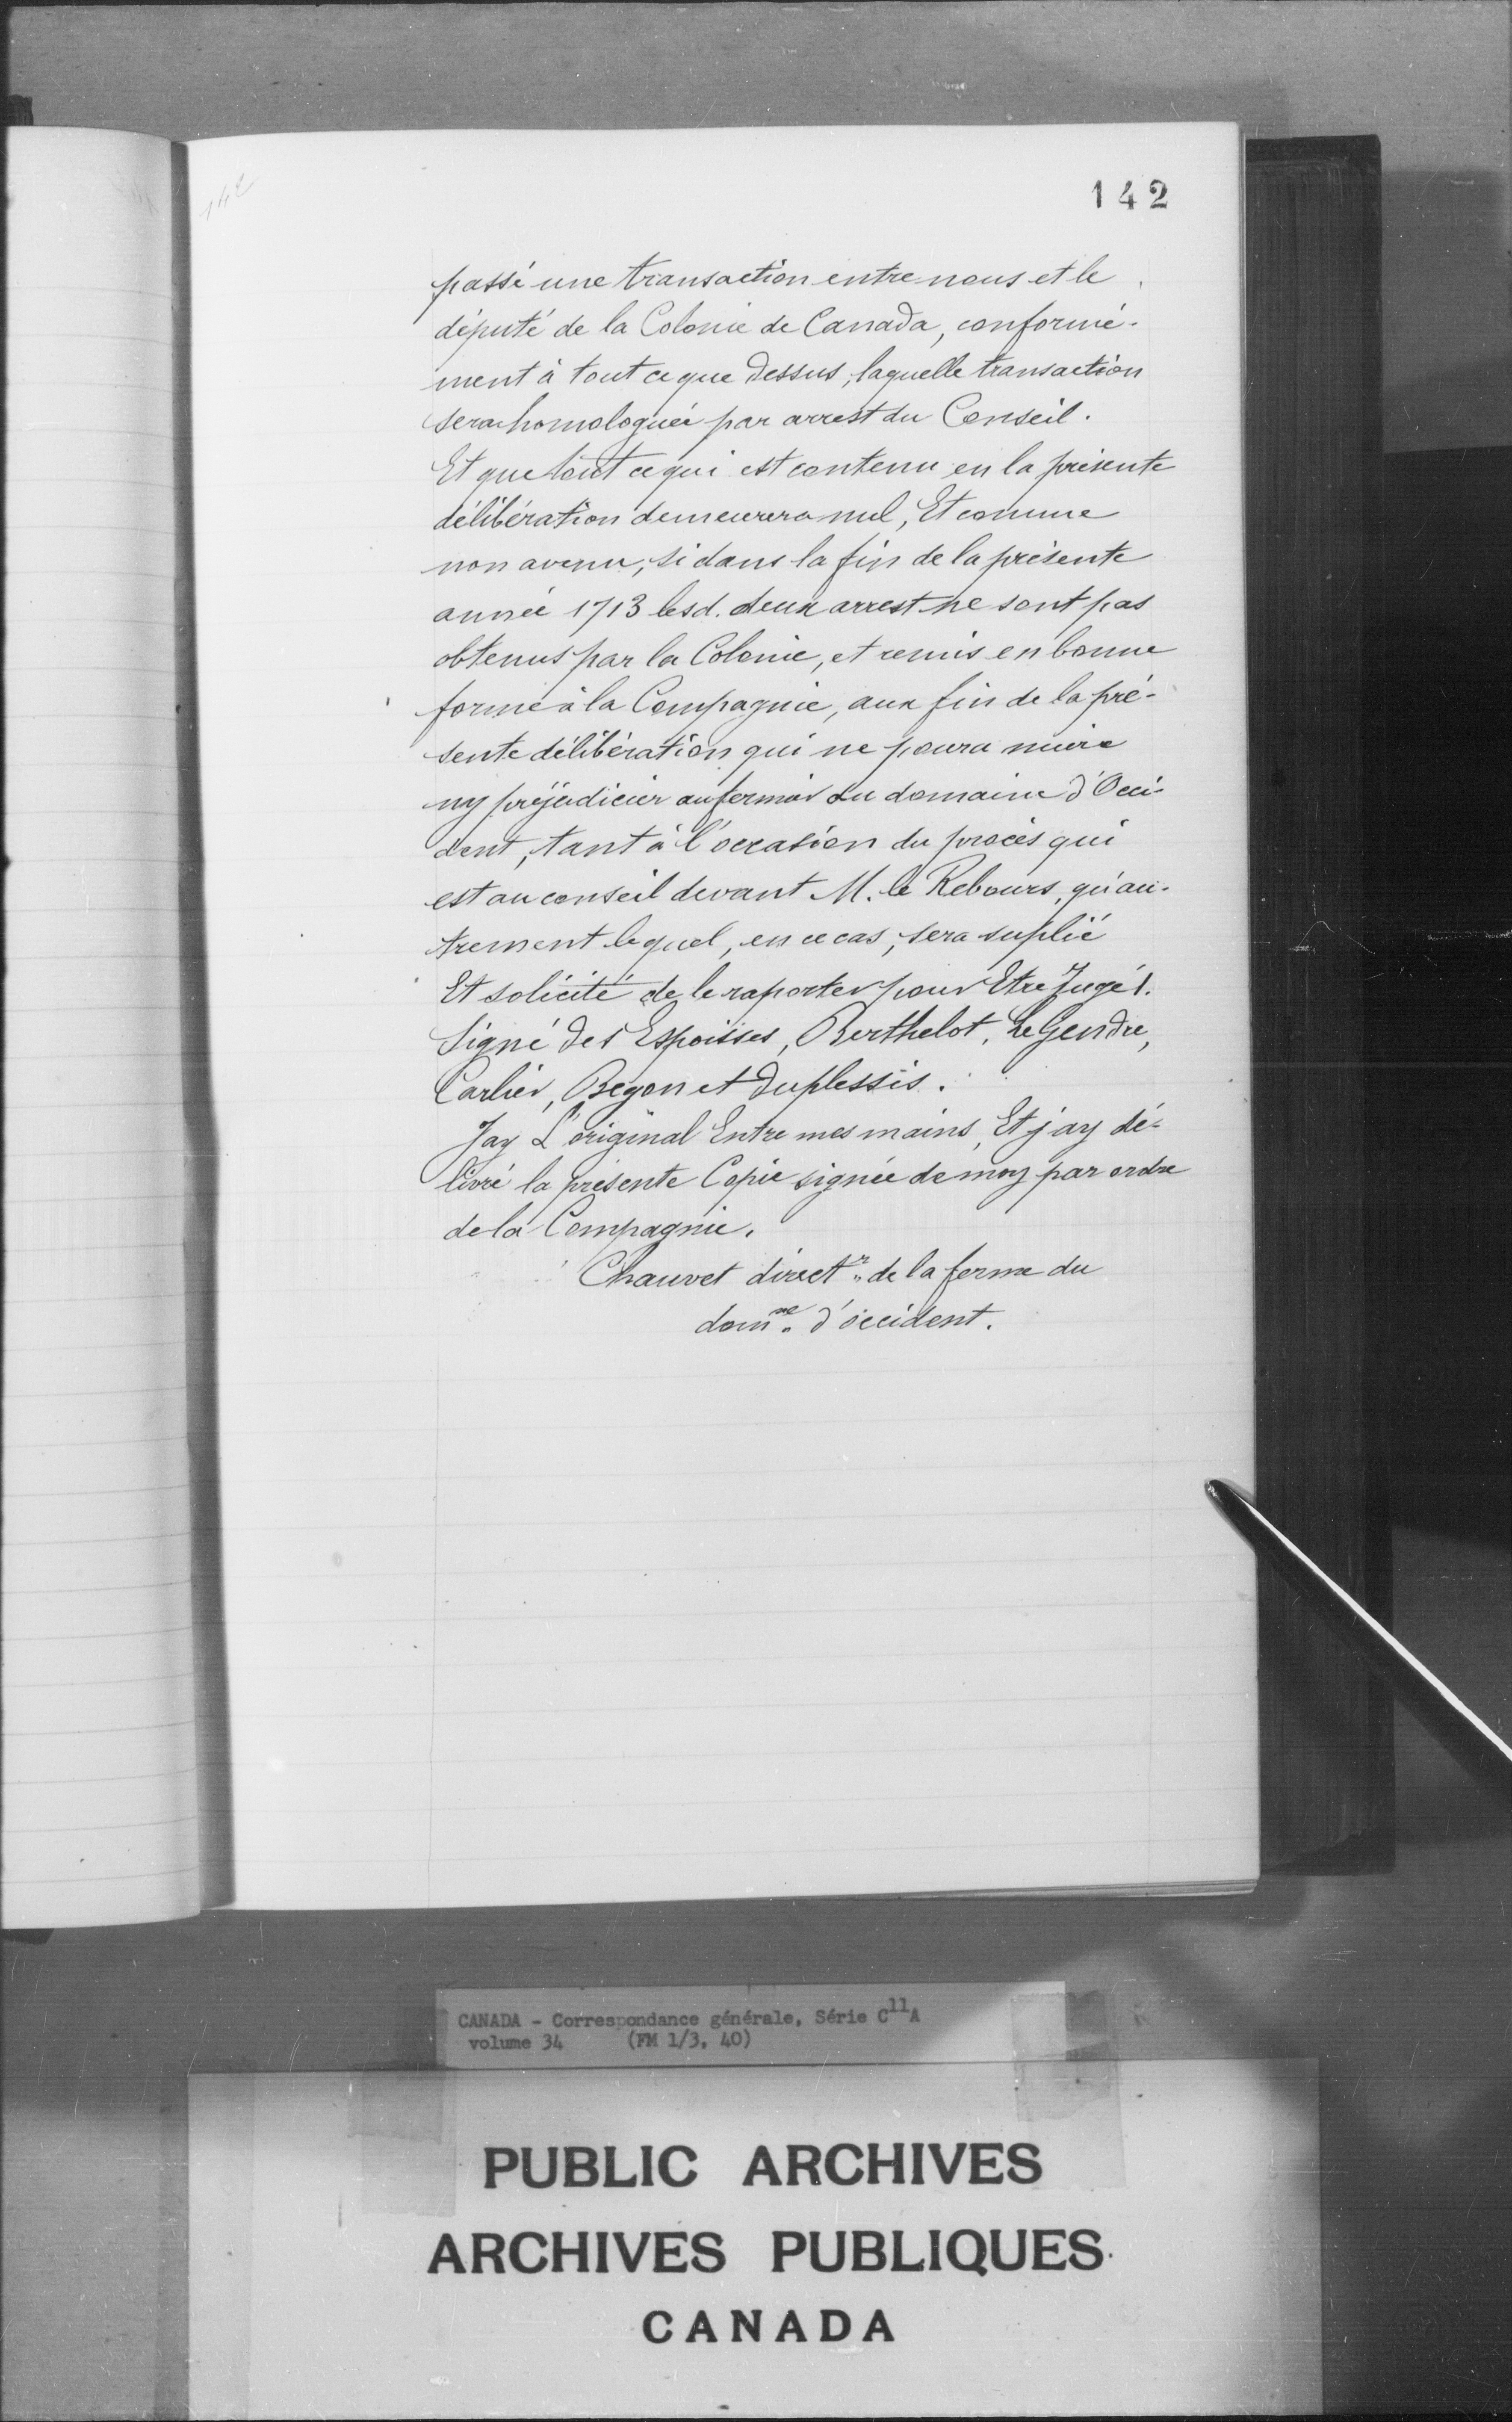 142
142
passé une transaction entre nous et le
député de la Colonie de Canada, conformé-
ment à tout ce que dessus, laquelle transaction
sera homologuée par arrest du Conseil.
Et que tout ce qui est contenu en la présente
délibération demeurera nul, Et comme
non avenu, si dans la fin de la présente
année 1713 lesd. deux arrest ne sont pas
obtenus par la Colonie, et remis en bonne
forme à la Compagnie, aux fin de la pré-
sente délibération qui ne poura nuire
ny préjudicier au fermier du domaine d'Occi-
dent, tant à l'occasion du procès qui
est au conseil devant M. le Rebours, qu'au-
trement lequel, en ce cas, sera suplié
Et solicité de le raporter pour Etre Jugé.
Signé des Espoisses, Berthelot, Le Gendre,
Carlier, Begon et Duplessis.
Jay L'original Entre mes mains, Et j'ay dé-
livré la présente Copie signée de moy par ordre
de la Compagnie.
Chauvet direct.r de la ferme du
dom.ne d'occident.
CANADA - Correspondance générale, Série C11A
volume 34 (FM 1/3, 40)
PUBLIC ARCHIVES
ARCHIVES PUBLIQUES
CANADA